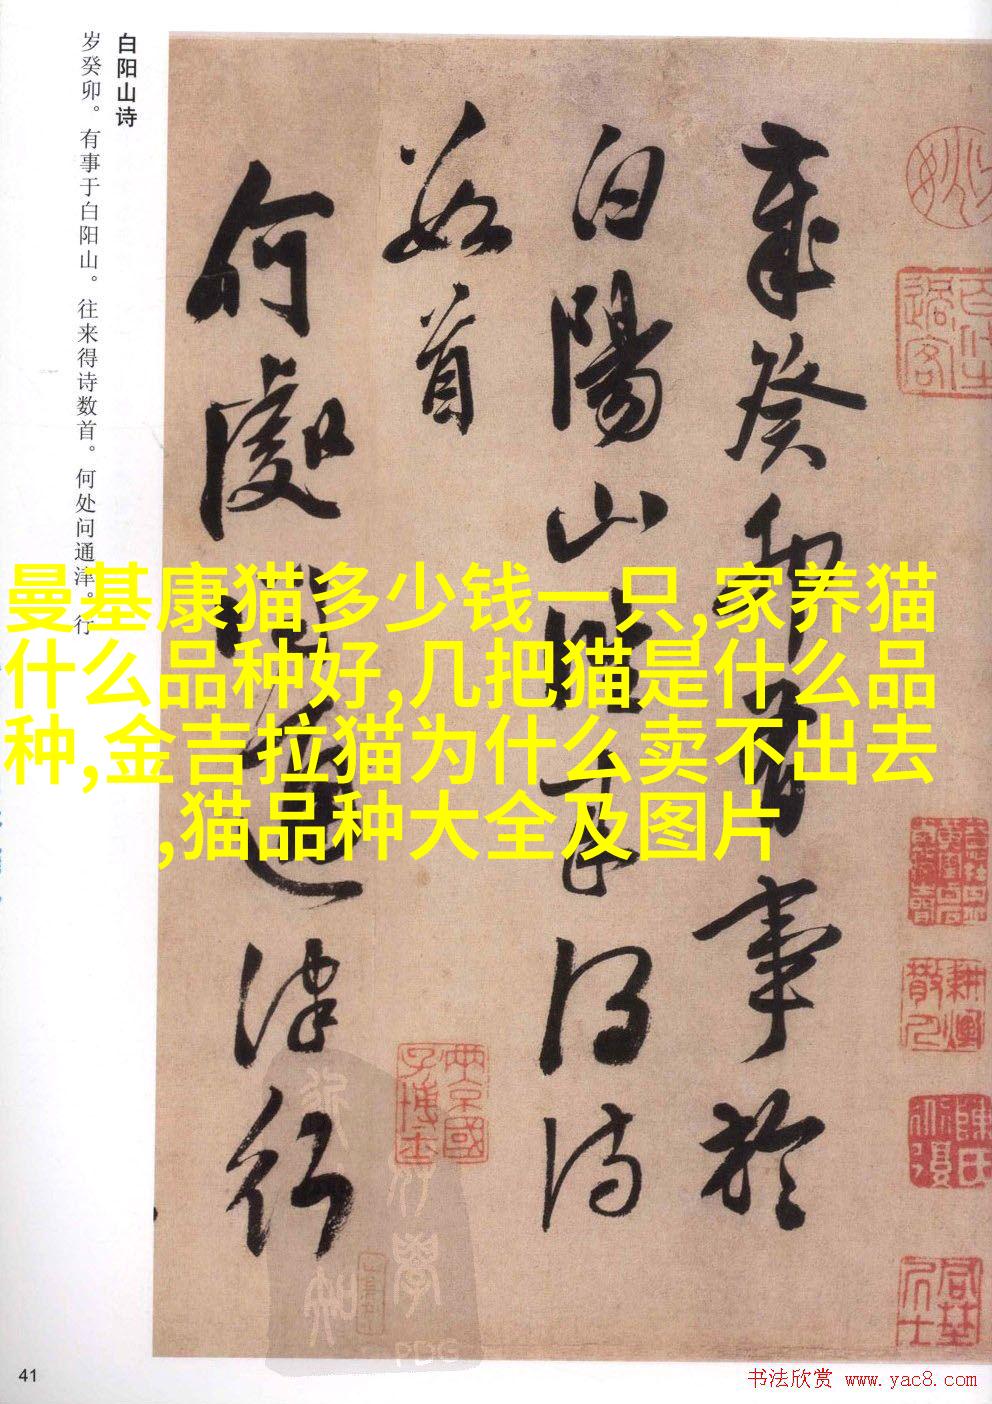 白阳山诗
岁癸卯。有事于白阳山。往来得诗数首。何处问通津。行
歳癸卯有事於
白陽山往来得诗
数首
何處問通津行
曼基康猫多少钱一只,家养猫
什么品种好,几把猫是什么品
种,金吉拉猫为什么卖不出去
,猫品种大全及图片
耕烟散人
陈氏
41
PDG
书法欣赏 www.yac8.com